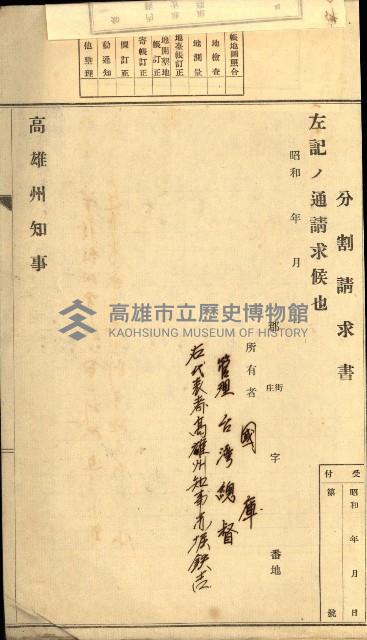 帳地圖照合
地檢査
地測量
地臺帳訂正
地開墾地
帳訂正
寄帳訂正
圖訂正
動通知
他整理
分割請求書
受付
昭和 年 月 日
第 號
左記ノ通請求候也
昭和 年 月
郡 街庄 字 番地
所有者 國庫
管理 台湾総督
右代表者高雄州知事赤堀鉄吉
高雄州知事
高雄市立歷史博物館
KAOHSIUNG MUSEUM OF HISTORY